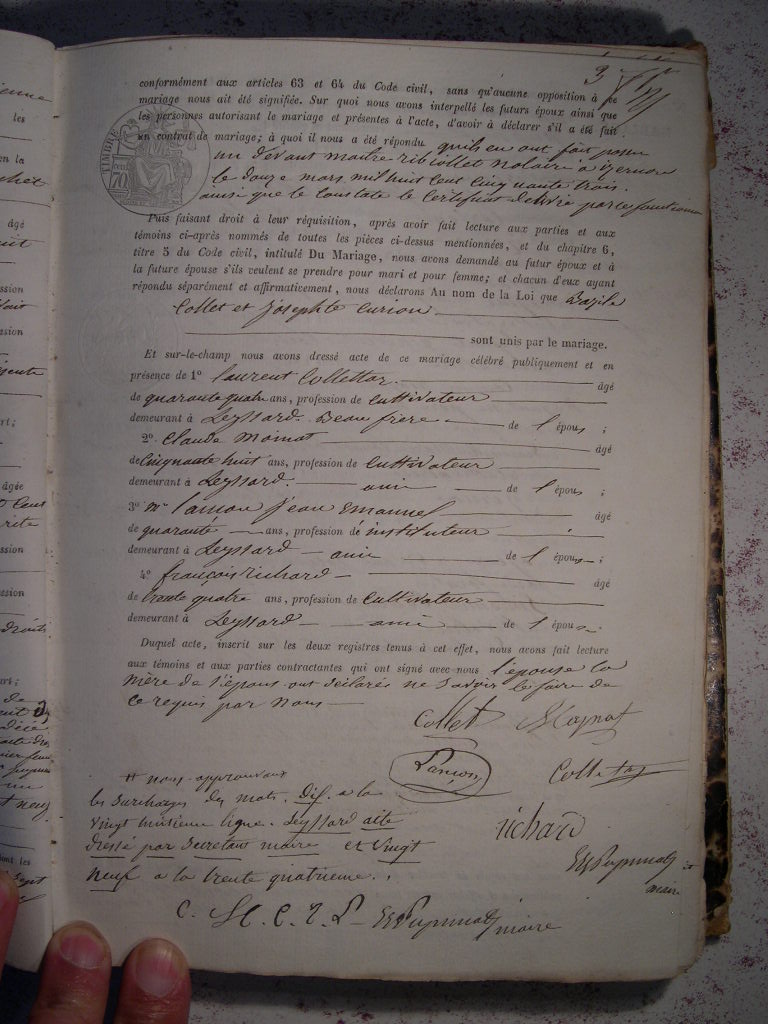 conformément aux articles 63 et 64 du Code civil, sans qu'aucune opposition à ce
mariage nous ait été signifiée. Sur quoi nous avons interpellé les futurs époux ainsi que
les personnes autorisant le mariage et présentes à l'acte, d'avoir à déclarer s'il a été fait
un contrat de mariage; à quoi il nous a été répondu quils en ont fait passer
un devant maitre ribollet notaire a izernore
le douze mars mil huit cent cinquante trois.
ainsi que le constate le certificat délivré par le
TIMBRE
70
Puis faisant droit à leur réquisition, après avoir fait lecture aux parties et aux
témoins ci-après nommés de toutes les pièces ci-dessus mentionnées, et du chapitre 6,
titre 5 du Code civil, intitulé Du Mariage, nous avons demandé au futur époux et à
la future épouse s'ils veulent se prendre pour mari et pour femme; et chacun d'eux ayant
répondu séparément et affirmativement, nous déclarons Au nom de la Loi que Bazile
Collet et josephte Curion
sont unis par le mariage.
Et sur-le-champ nous avons dressé acte de ce mariage célébré publiquement et en
présence de 1º laurent Collettaz âgé
de quarante quatre ans, profession de cultivateur
demeurant à Leyssard Beau frère de l'épous ;
2º Claude Moinat âgé
de Cinquante huit ans, profession de Cultivateur
demeurant à Leyssard. ami de l'épous ;
3º mr lançon jean Emanuel âgé
de quarante ans, profession d'instituteur
demeurant à Leyssard ami de l'épous ;
4º françois richard âgé
de trente quatre ans, profession de Cultivateur
demeurant à Leyssard ami de l'épous
Duquel acte, inscrit sur les deux registres tenus à cet effet, nous avons fait lecture
aux témoins et aux parties contractantes qui ont signé avec nous l'épouse la
mère de l'épous ont déclarés ne savoir le faire de
ce requis par nous
Collet
Lançon
Collettaz
richard
maire
nous approuvons
les surcharges des mots. Dif. a la
vingt huitieme ligne. Leyssard acte
dressé par secretaire maire et vingt
neuf a la trente quatrieme.
maire